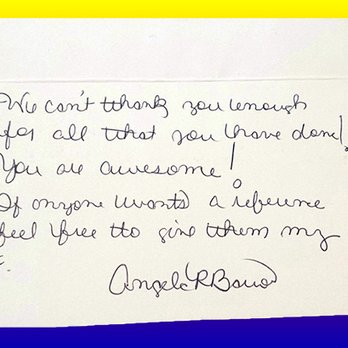 We can't thank you enough
for all that you have done!
You are awesome!
If anyone wants a reference
feel free to give them my
Angela R